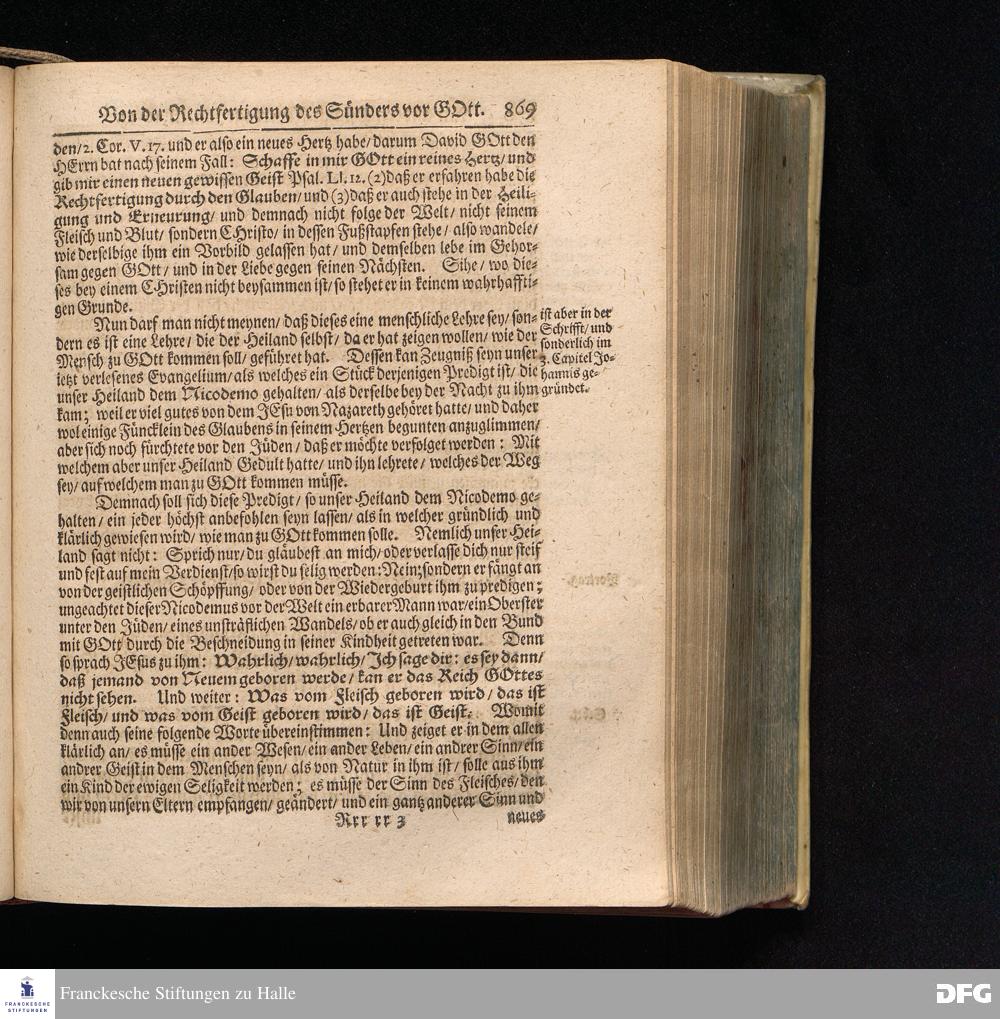 Von der Rechtfertigung des Sünders vor GOtt. 869
den/ 2. Cor. V. 17. und er also ein neues Hertz habe/ darum David GOtt den
HErrn bat nach seinem Fall: Schaffe in mir GOtt ein reines Hertz/ und
gib mir einen neuen gewissen Geist Psal. LI. 12. (2) daß er erfahren habe die
Rechtfertigung durch den Glauben/ und (3) daß er auch stehe in der Heili-
gung und Erneurung/ und demnach nicht folge der Welt/ nicht seinem
Fleisch und Blut/ sondern CHristo/ in dessen Fußstapfen stehe/ also wandele/
wie derselbige ihm ein Vorbild gelassen hat/ und demselben lebe im Gehor-
sam gegen GOtt/ und in der Liebe gegen seinen Nächsten. Sihe/ wo die-
ses bey einem CHristen nicht beysammen ist/ so stehet er in keinem wahrhaffti-
gen Grunde.
Nun darf man nicht meynen/ daß dieses eine menschliche Lehre sey/ son-
dern es ist eine Lehre/ die der Heiland selbst/ da er hat zeigen wollen/ wie der
Mensch zu GOtt kommen soll/ geführet hat. Dessen kan Zeugniß seyn unser
ietzt verlesenes Evangelium/ als welches ein Stück derjenigen Predigt ist/ die
unser Heiland dem Nicodemo gehalten/ als derselbe bey der Nacht zu ihm
kam; weil er viel gutes von dem JEsu von Nazareth gehöret hatte/ und daher
wol einige Füncklein des Glaubens in seinem Hertzen begunten anzuglimmen/
aber sich noch fürchtete vor den Jüden/ daß er möchte verfolget werden: Mit
welchem aber unser Heiland Gedult hatte/ und ihn lehrete/ welches der Weg
sey/ auf welchem man zu GOtt kommen müsse.
ist aber in der
Schrifft/ und
sonderlich im
3. Capitel Jo-
hannis ge-
gründet.
Demnach soll sich diese Predigt/ so unser Heiland dem Nicodemo ge-
halten/ ein jeder höchst anbefohlen seyn lassen/ als in welcher gründlich und
klärlich gewiesen wird/ wie man zu GOtt kommen solle. Nemlich unser Hei-
land sagt nicht: Sprich nur/ du gläubest an mich/ oder verlasse dich nur steif
und fest auf mein Verdienst/ so wirst du selig werden: Nein; sondern er fängt an
von der geistlichen Schöpffung/ oder von der Wiedergeburt ihm zu predigen;
ungeachtet dieser Nicodemus vor der Welt ein erbarer Mann war/ ein Oberster
unter den Jüden/ eines unsträflichen Wandels/ ob er auch gleich in den Bund
mit GOtt durch die Beschneidung in seiner Kindheit getreten war. Denn
so sprach JEsus zu ihm: Wahrlich/ wahrlich/ Ich sage dir: es sey dann/
daß jemand von Neuem geboren werde/ kan er das Reich GOttes
nicht sehen. Und weiter: Was vom Fleisch geboren wird/ das ist
Fleisch/ und was vom Geist geboren wird/ das ist Geist. Womit
denn auch seine folgende Worte übereinstimmen: Und zeiget er in dem allen
klärlich an/ es müsse ein ander Wesen/ ein ander Leben/ ein andrer Sinn/ ein
andrer Geist in dem Menschen seyn/ als von Natur in ihm ist/ solle aus ihm
ein Kind der ewigen Seligkeit werden; es müsse der Sinn des Fleisches/ den
wir von unsern Eltern empfangen/ geändert/ und ein gantz anderer Sinn und
Rrr rr 3 neues
FRANCKESCHE
STIFTUNGEN
Franckesche Stiftungen zu Halle
DFG